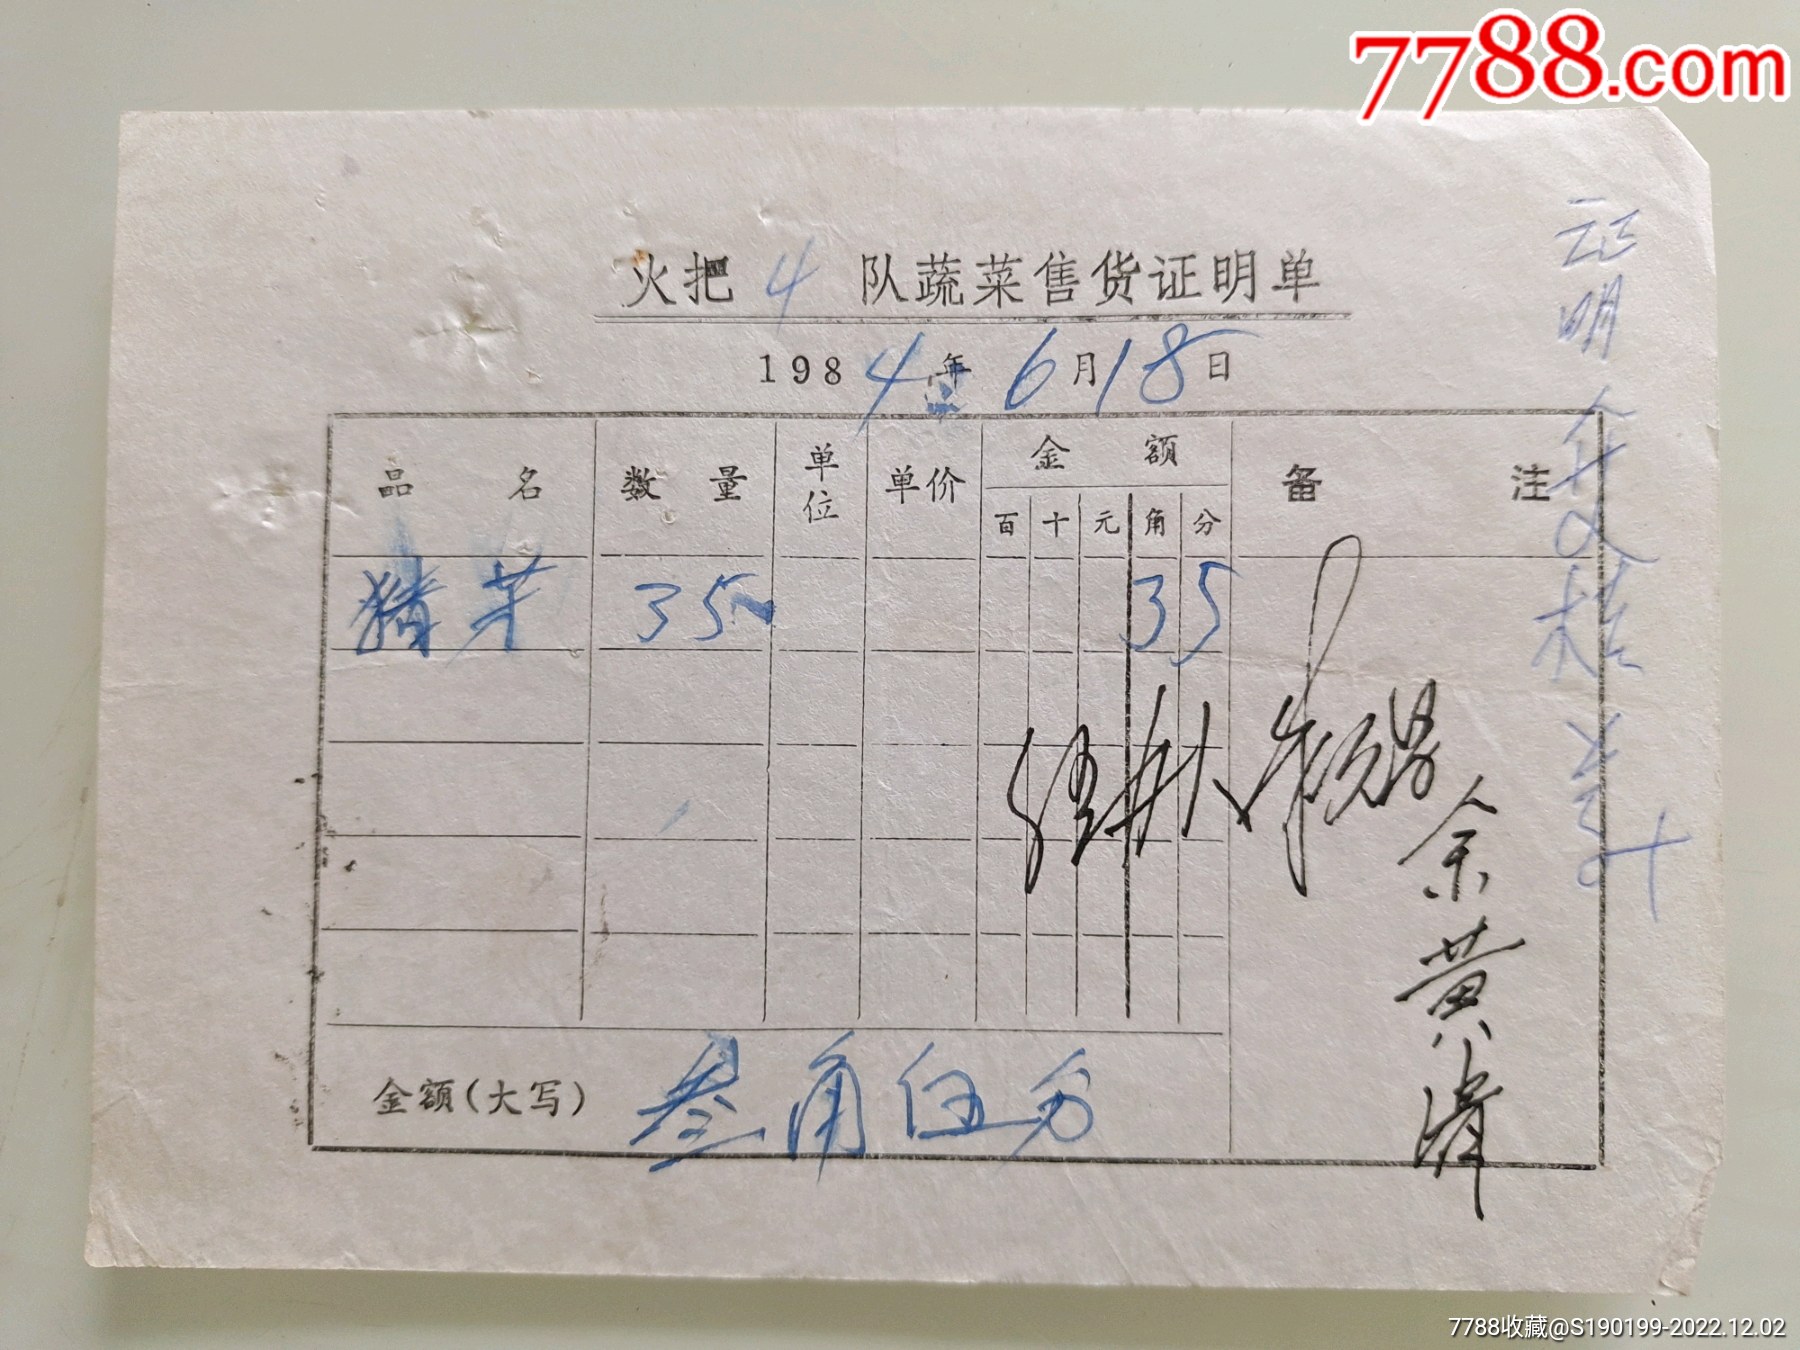 7788.com
火把4队蔬菜售货证明单
1984年6月18日
品名 数量 单位 单价 金额 备注
百 十 元 角 分
猪芽 35 3 5
经办人
余
黄
金额(大写) 叁角伍分
证明
7788收藏@S190199-2022.12.02